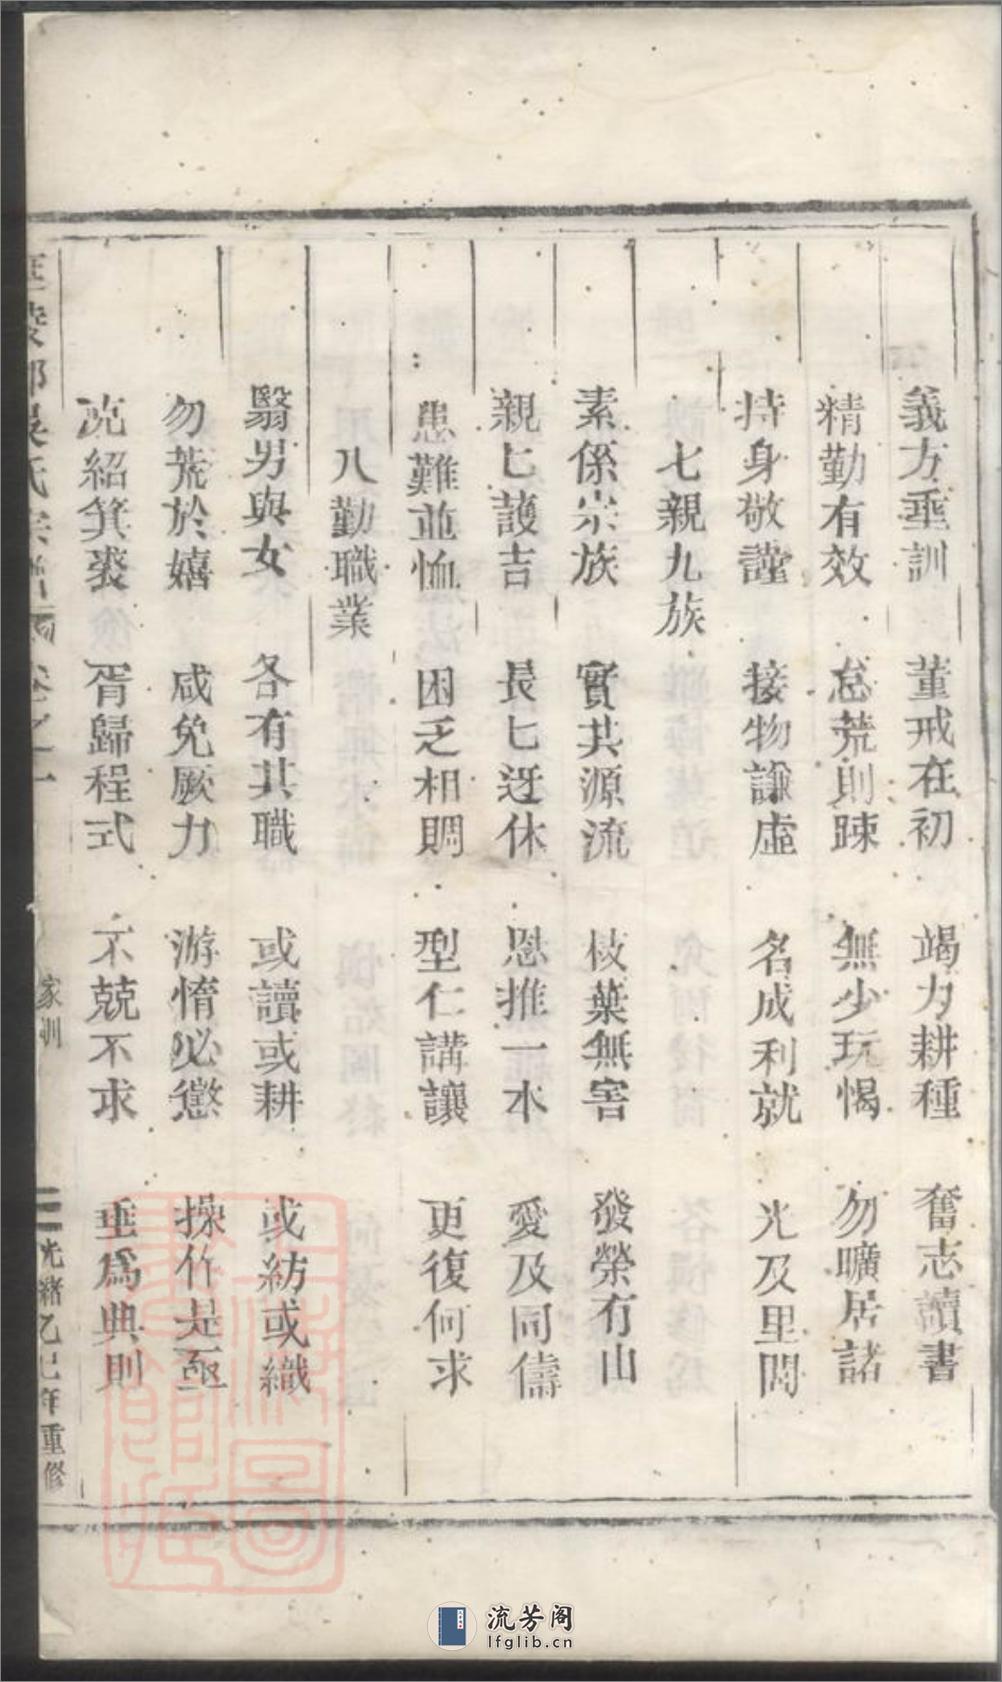 義方垂訓　董戒在初　竭力耕種　奮志讀書
精勤有效　怠荒則踈　無少玩愒　勿曠居諸
持身敬謹　接物謙虛　名成利就　光及里閭
七親九族
素係宗族　實共源流　枝葉無害　發榮有由
親匕護吉　長匕迓休　恩推一本　愛及同儔
患難並恤　困乏相賙　型仁講讓　更復何求
八勤職業
翳男與女　各有其職　或讀或耕　或紡或織
勿荒於嬉　咸免厥力　游惰必懲　操作是亟
克紹箕裘　胥歸程式　不兢不求　垂為典則
吳氏宗譜　卷之一　家訓　二　光緒乙巳年重修
流芳阁
lfglib.cn